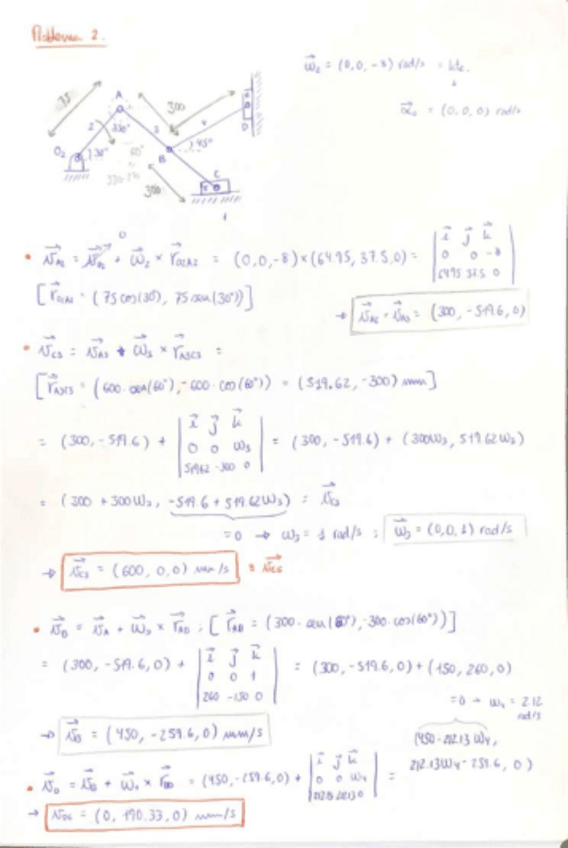 Problema 2.
ω⃗₂ = (0,0,-8) rad/s = kte.
↓
α⃗₂ = (0,0,0) rad/s
75
A
300
2
330°
3
4
D
O₂
30°
60°
B
45°
300
C
1
• v⃗A₂ = v⃗O₂ (→ 0) + ω⃗₂ × r⃗O₂A₂ = (0,0,-8)×(64.95, 37.5,0) = | i⃗ j⃗ k⃗ |
| 0 0 -8 |
| 64.95 37.5 0 |
[ r⃗O₂A₂ = (75 cos(30), 75 sen(30°)) ]
→ v⃗A₂ = v⃗A₃ = (300, -519.6, 0)
• v⃗C₃ = v⃗A₃ + ω⃗₃ × r⃗A₃C₃ =
[ r⃗A₃C₃ = (600·sen(60°), -600·cos(60°)) = (519.62, -300) mm ]
= (300, -519.6) + | i⃗ j⃗ k⃗ | = (300, -519.6) + (300ω₃, 519.62ω₃)
| 0 0 ω₃ |
| 519.62 -300 0 |
= (300 + 300ω₃, -519.6 + 519.62ω₃) = v⃗C₃
=0 → ω₃ = 1 rad/s ; ω⃗₃ = (0,0,1) rad/s
→ v⃗C₃ = (600, 0, 0) mm/s = v⃗C₆
• v⃗B = v⃗A + ω⃗₃ × r⃗AB ; [ r⃗AB = (300·sen(60°), -300·cos(60°)) ]
= (300, -519.6, 0) + | i⃗ j⃗ k⃗ | = (300, -519.6, 0) + (150, 260, 0)
| 0 0 1 |
| 260 -150 0 |
=0 → ω₄ = 2.12
rad/s
→ v⃗B = (450, -259.6, 0) mm/s
(450-212.13ω₄,
212.13ω₄-259.6, 0)
• v⃗D = v⃗B + ω⃗₄ × r⃗BD = (450,-259.6,0) + | i⃗ j⃗ k⃗ | =
| 0 0 ω₄ |
| 212.13 212.13 0 |
→ v⃗D₆ = (0, 190.33, 0) mm/s